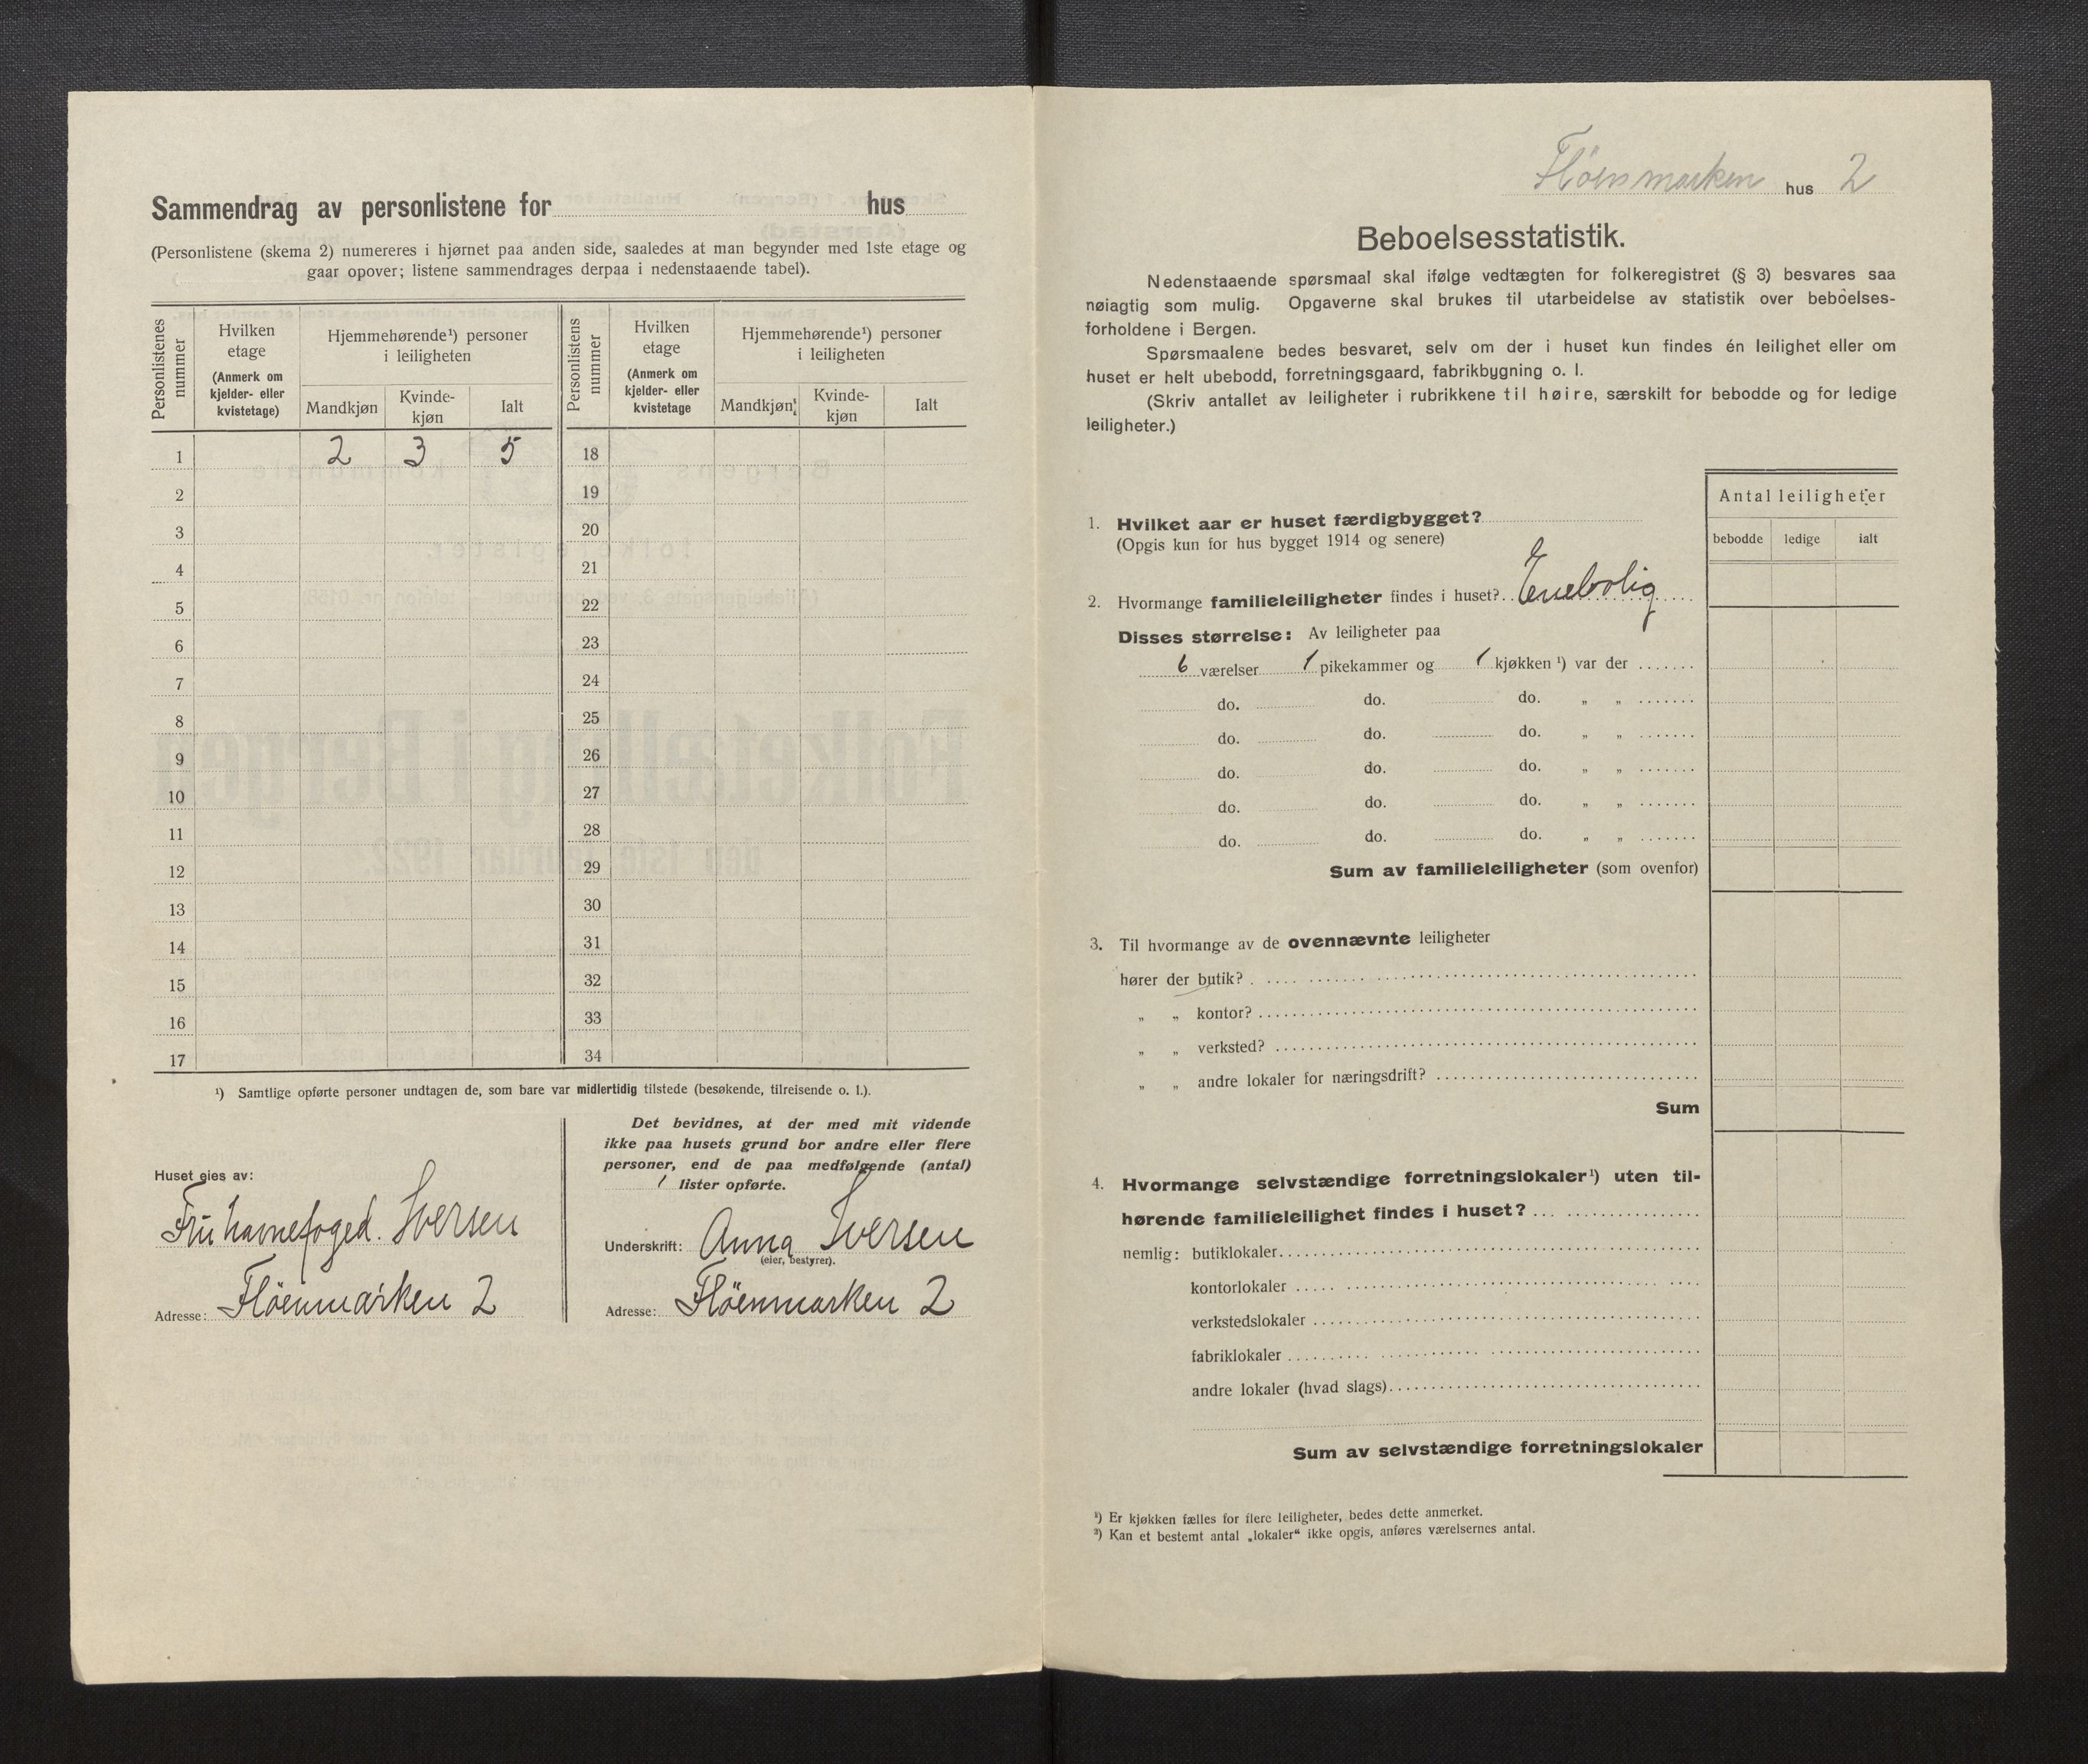 Sammendrag av personlistene for hus
(Personlistene (skema 2) numereres i hjørnet paa anden side, saaledes at man begynder med 1ste etage og
gaar opover; listene sammendrages derpaa i nedenstaaende tabel).
Personlistenes nummer
Hvilken etage (Anmerk om kjelder- eller kvistetage)
Hjemmehørende¹) personer i leiligheten
Mandkjøn Kvindekjøn Ialt
Personlistens nummer
Hvilken etage (Anmerk om kjelder- eller kvistetage
Hjemmehørende¹) personer i leiligheten
Mandkjøn Kvindekjøn Ialt
1 2 3 5 18
2 19
3 20
4 21
5 22
6 23
7 24
8 25
9 26
10 27
11 28
12 29
13 30
14 31
15 32
16 33
17 34
¹) Samtlige opførte personer undtagen de, som bare var midlertidig tilstede (besøkende, tilreisende o. l.).
Huset eies av:
Fru havnefoged. Iversen
Adresse: Flöenmarken 2
Det bevidnes, at der med mit vidende
ikke paa husets grund bor andre eller flere
personer, end de paa medfølgende (antal)
1 lister opførte.
Underskrift: Anna Iversen
(eier, bestyrer).
Adresse: Flöenmarken 2
Flöensmarken hus 2
Beboelsesstatistik.
Nedenstaaende spørsmaal skal ifølge vedtægten for folkeregistret (§ 3) besvares saa
nøiagtig som mulig. Opgaverne skal brukes til utarbeidelse av statistik over beboelses-
forholdene i Bergen.
Spørsmaalene bedes besvaret, selv om der i huset kun findes én leilighet eller om
huset er helt ubebodd, forretningsgaard, fabrikbygning o. l.
(Skriv antallet av leiligheter i rubrikkene til høire, særskilt for bebodde og for ledige
leiligheter.)
Antal leiligheter
bebodde ledige ialt
1. Hvilket aar er huset færdigbygget?
(Opgis kun for hus bygget 1914 og senere)
2. Hvormange familieleiligheter findes i huset? Enebolig
Disses størrelse: Av leiligheter paa
6 værelser 1 pikekammer og 1 kjøkken ¹) var der
do. do. do. „ „
do. do. do. „ „
do. do. do. „ „
do. do. do. „ „
do. do. do. „ „
Sum av familieleiligheter (som ovenfor)
3. Til hvormange av de ovennævnte leiligheter
hører der butik?
„ „ kontor?
„ „ verksted?
„ „ andre lokaler for næringsdrift?
Sum
4. Hvormange selvstændige forretningslokaler¹) uten til-
hørende familieleilighet findes i huset?
nemlig: butiklokaler
kontorlokaler
verkstedslokaler
fabriklokaler
andre lokaler (hvad slags)
Sum av selvstændige forretningslokaler
¹) Er kjøkken fælles for flere leiligheter, bedes dette anmerket.
²) Kan et bestemt antal „lokaler“ ikke opgis, anføres værelsernes antal.